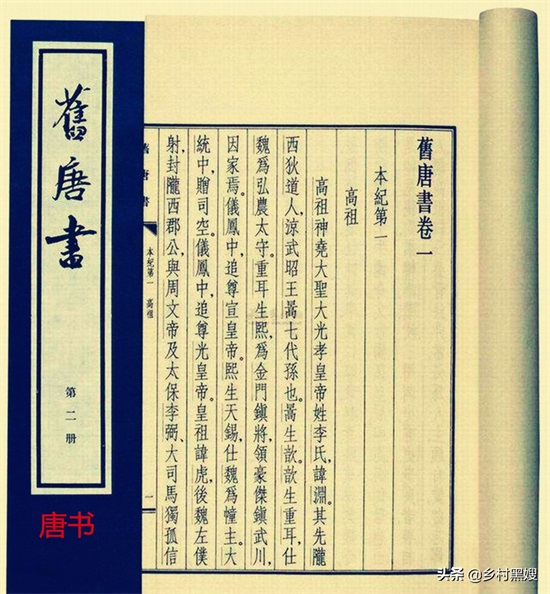 舊唐書
第二册
唐书
舊唐書卷一
本紀第一
高祖
高祖神堯大聖大光孝皇帝姓李氏，諱淵。其先隴
西狄道人，涼武昭王暠七代孫也。暠生歆。歆生重耳，仕
魏爲弘農太守。重耳生熙，爲金門鎮將，領豪傑鎮武川，
因家焉。儀鳳中，追尊宣皇帝。熙生天錫，仕魏爲幢主。大
統中，贈司空。儀鳳中，追尊光皇帝。皇祖諱虎，後魏左僕
射，封隴西郡公，與周文帝及太保李弼、大司馬獨孤信
舊唐書
本紀第一 高祖
一
头条 @乡村黑嫂